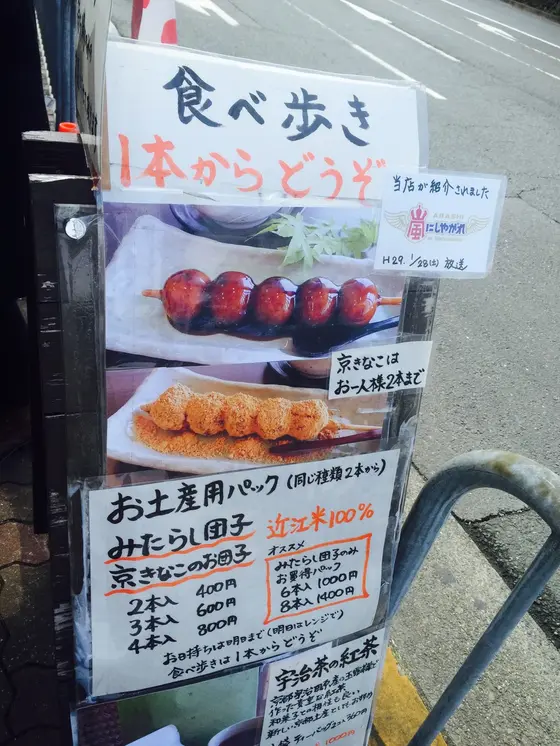 食べ歩き
1本からどうぞ
当店が紹介されました
ARASHI
嵐にしやがれ
H29. 1/28(土) 放送
京きなこは
お一人様2本まで
お土産用パック (同じ種類2本から)
みたらし団子
京きなこのお団子
2本入 400円
3本入 600円
4本入 800円
近江米100%
オススメ
みたらし団子のみ
お買得パック
6本入 1000円
8本入 1400円
お日持ちは明日まで(明日はレンジで)
食べ歩きは1本からどうぞ
宇治茶の紅茶
作った貴重な紅茶
和菓子との相性も良い
新しい京都土産としてお勧め